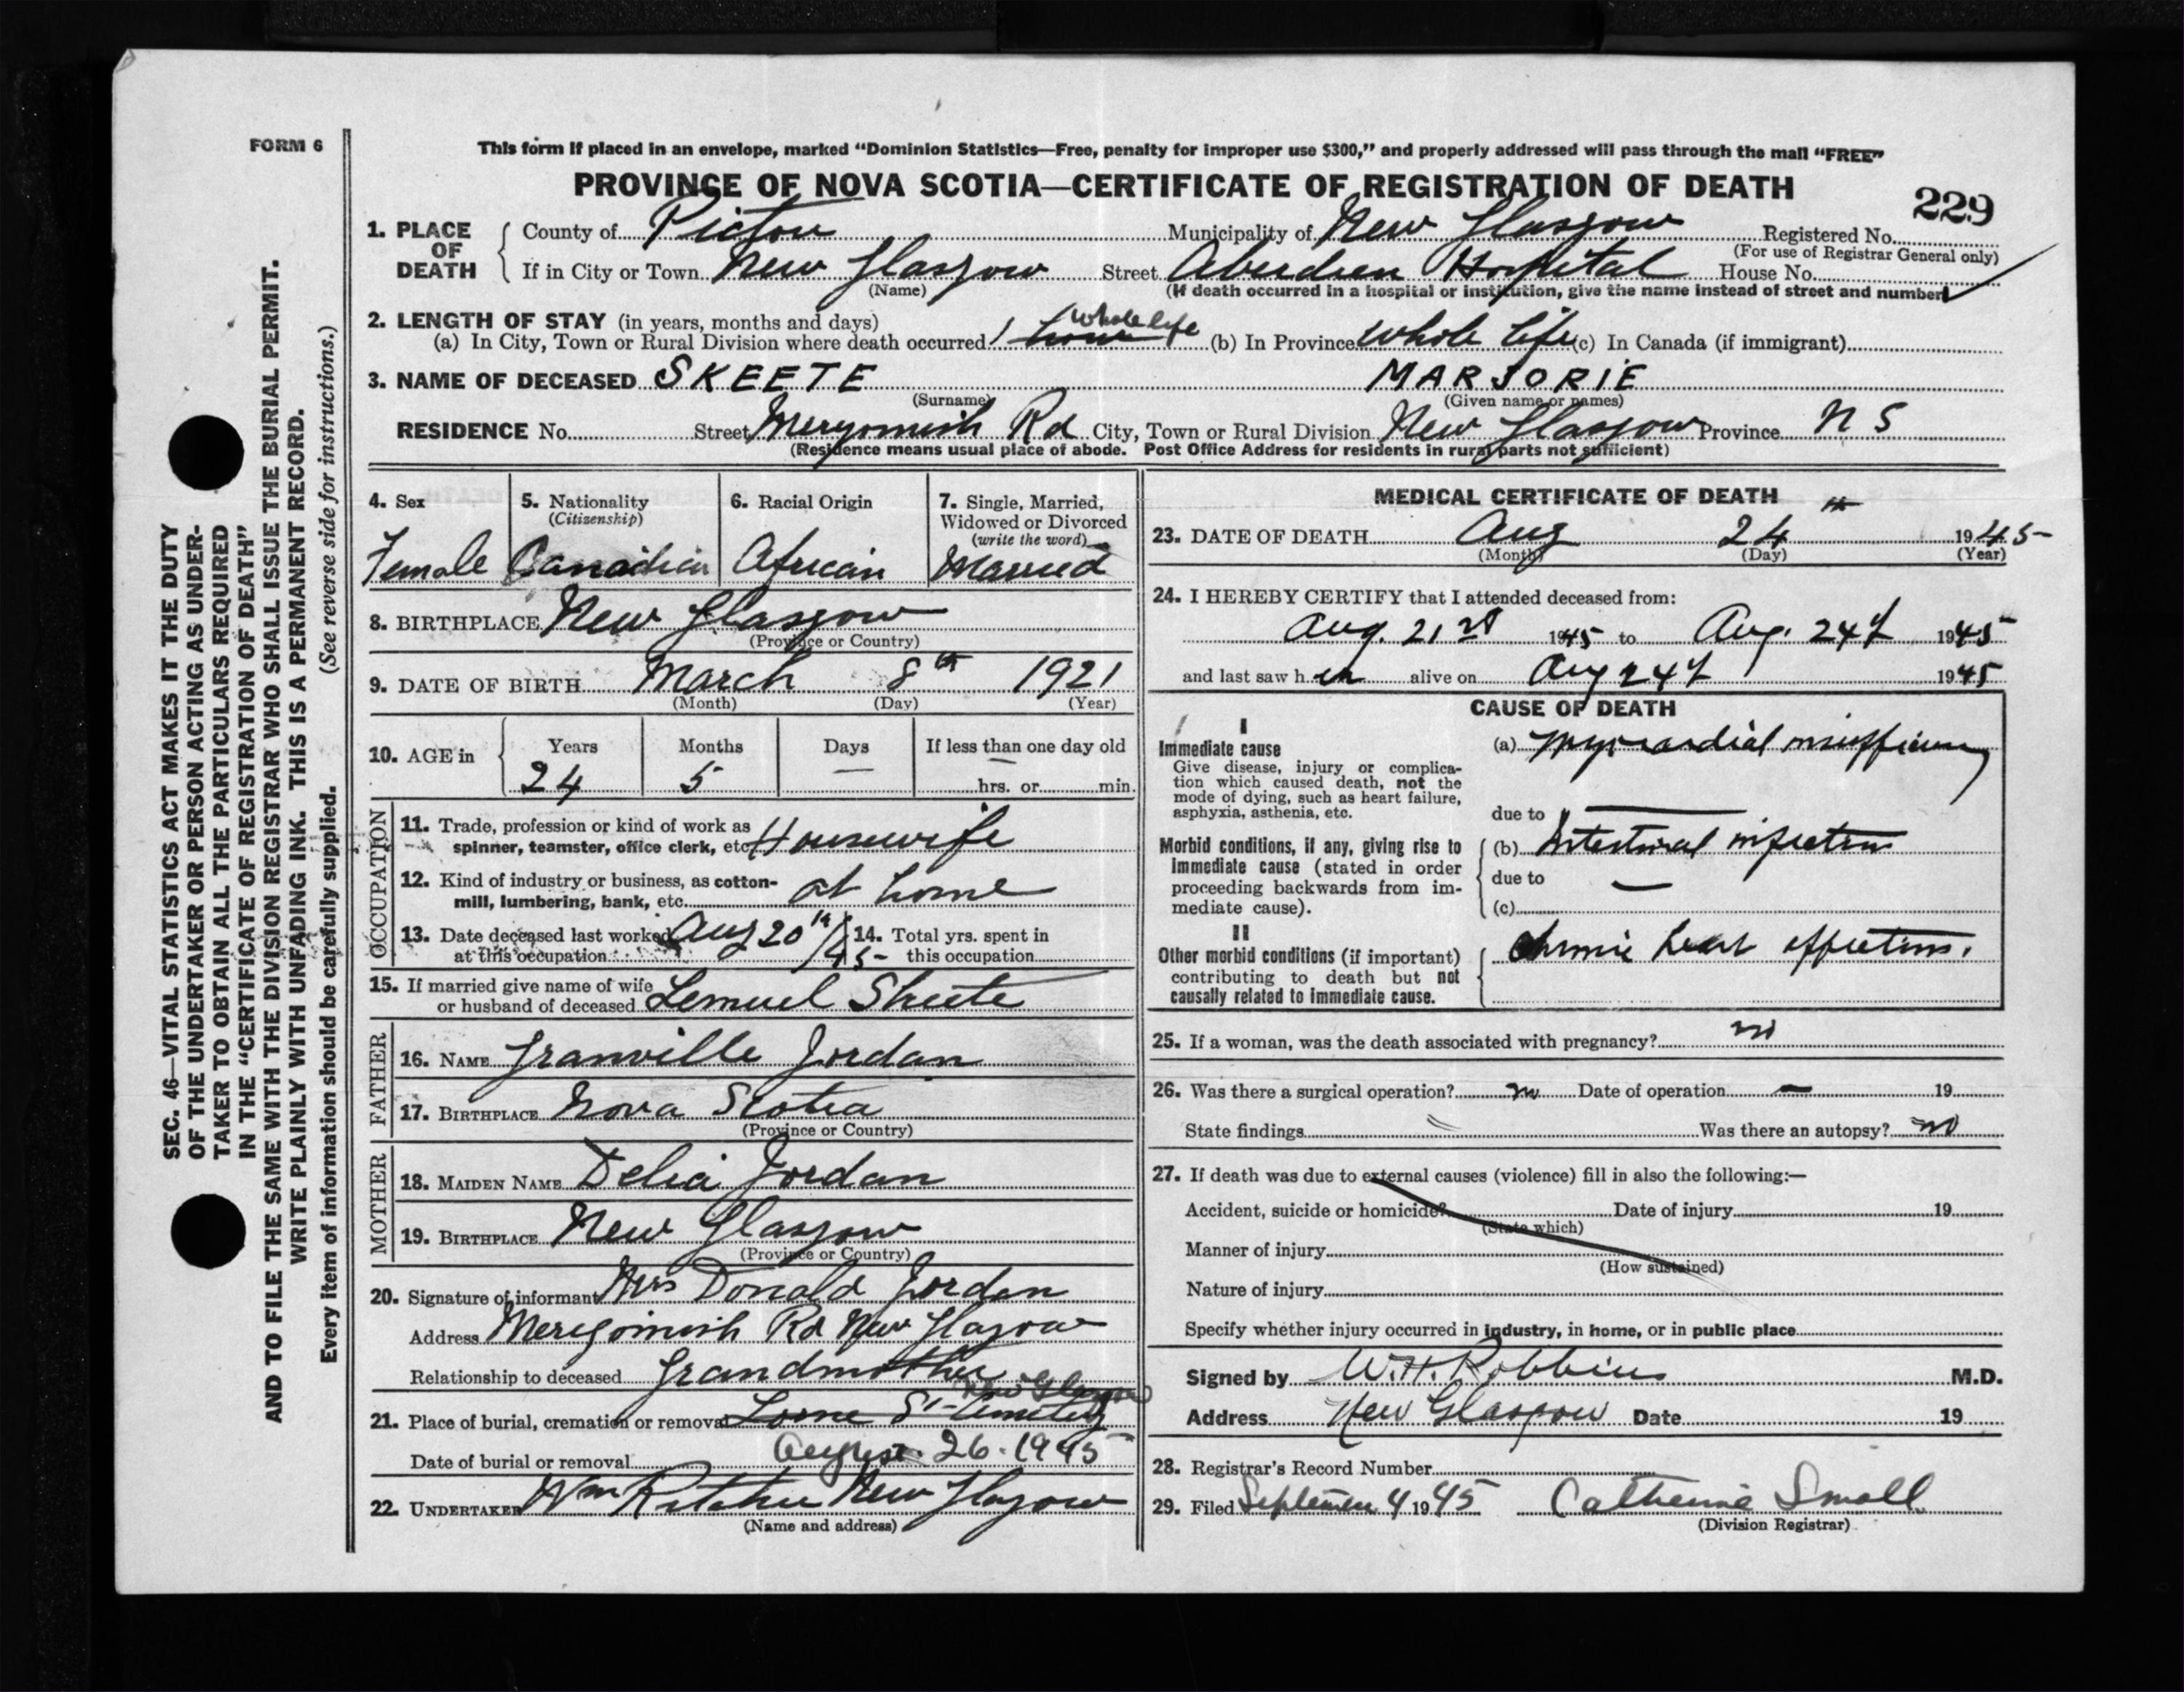 FORM 6
This form if placed in an envelope, marked “Dominion Statistics—Free, penalty for improper use $300,” and properly addressed will pass through the mail “FREE”
PROVINCE OF NOVA SCOTIA—CERTIFICATE OF REGISTRATION OF DEATH
229
1. PLACE OF DEATH
County of Pictou Municipality of New Glasgow Registered No.
(For use of Registrar General only)
If in City or Town New Glasgow Street Aberdeen Hospital House No.
(Name) (If death occurred in a hospital or institution, give the name instead of street and number)
2. LENGTH OF STAY (in years, months and days)
whole life
(a) In City, Town or Rural Division where death occurred 1 hour (b) In Province Whole life (c) In Canada (if immigrant)
3. NAME OF DECEASED SKEETE MARJORIE
(Surname) (Given name or names)
RESIDENCE No. Street Merigomish Rd City, Town or Rural Division New Glasgow Province N S
(Residence means usual place of abode. Post Office Address for residents in rural parts not sufficient)
4. Sex 5. Nationality 6. Racial Origin 7. Single, Married,
(Citizenship) Widowed or Divorced
(write the word)
Female Canadian African Married
8. BIRTHPLACE New Glasgow
(Province or Country)
9. DATE OF BIRTH March 8th 1921
(Month) (Day) (Year)
10. AGE in Years Months Days If less than one day old
24 5 — — hrs. or min.
OCCUPATION
11. Trade, profession or kind of work as
spinner, teamster, office clerk, etc. Housewife
12. Kind of industry or business, as cotton-
mill, lumbering, bank, etc. at home
13. Date deceased last worked Aug 20th/45 14. Total yrs. spent in
at this occupation this occupation
15. If married give name of wife
or husband of deceased Lemuel Skeete
FATHER
16. NAME Granville Jordan
17. BIRTHPLACE Nova Scotia
(Province or Country)
MOTHER
18. MAIDEN NAME Delia Jordan
19. BIRTHPLACE New Glasgow
(Province or Country)
20. Signature of informant Mrs Donald Jordan
Address Merigomish Rd New Glasgow
Relationship to deceased Grandmother
New Glasgow
21. Place of burial, cremation or removal Lorne St Cemetery
Date of burial or removal August 26 - 1945
22. UNDERTAKER Wm Ritchie New Glasgow
(Name and address)
MEDICAL CERTIFICATE OF DEATH
23. DATE OF DEATH Aug 24th 1945
(Month) (Day) (Year)
24. I HEREBY CERTIFY that I attended deceased from:
Aug. 21st 1945 to Aug. 24th 1945
and last saw her alive on Aug 24th 1945
CAUSE OF DEATH
I
Immediate cause (a) Myocardial insufficiency
Give disease, injury or complica-
tion which caused death, not the
mode of dying, such as heart failure,
asphyxia, asthenia, etc. due to —
Morbid conditions, if any, giving rise to (b) Intestinal infection
immediate cause (stated in order
proceeding backwards from im- due to —
mediate cause). (c)
II
Other morbid conditions (if important) Chronic heart affection.
contributing to death but not
causally related to immediate cause.
25. If a woman, was the death associated with pregnancy? no
26. Was there a surgical operation? no Date of operation — 19
State findings Was there an autopsy? no
27. If death was due to external causes (violence) fill in also the following:—
Accident, suicide or homicide? Date of injury 19
(State which)
Manner of injury
(How sustained)
Nature of injury
Specify whether injury occurred in industry, in home, or in public place
Signed by W.H. Robbins M.D.
Address New Glasgow Date 19
28. Registrar's Record Number
29. Filed September 4 1945 Catherine Small
(Division Registrar)
SEC. 46—VITAL STATISTICS ACT MAKES IT THE DUTY
OF THE UNDERTAKER OR PERSON ACTING AS UNDER-
TAKER TO OBTAIN ALL THE PARTICULARS REQUIRED
IN THE “CERTIFICATE OF REGISTRATION OF DEATH”
AND TO FILE THE SAME WITH THE DIVISION REGISTRAR WHO SHALL ISSUE THE BURIAL PERMIT.
WRITE PLAINLY WITH UNFADING INK. THIS IS A PERMANENT RECORD.
Every item of information should be carefully supplied. (See reverse side for instructions.)